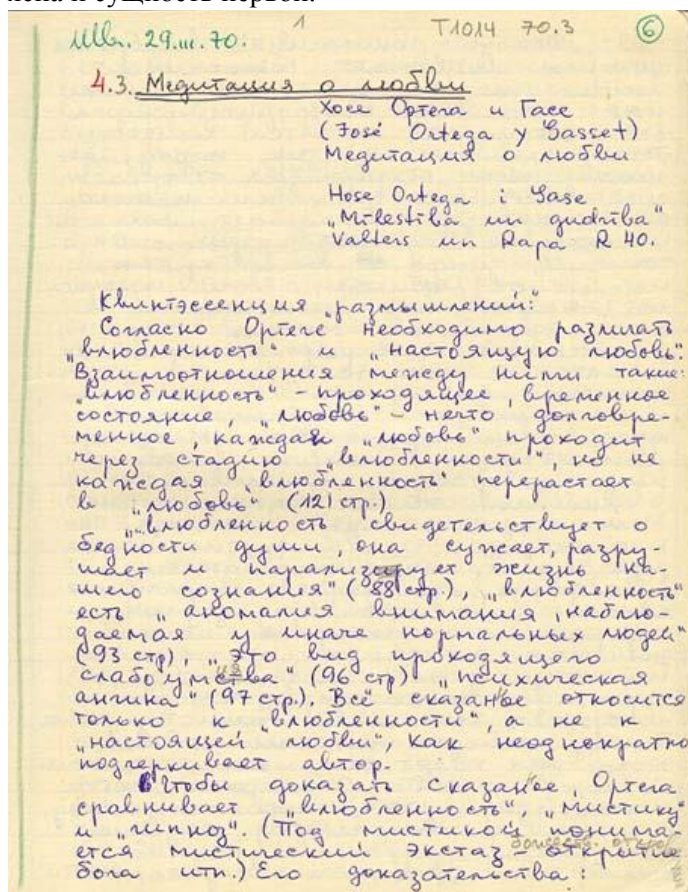 лена и сущность первой.
Шв. 29.III.70. 1 T1014 70.3 6
4.3. Медитация о любви
Хосе Ортега и Гасс
(José Ortega y Gasset)
Медитация о любви
Hose Ortega i Gase
„Milestība un gudrība"
Valters un Rapa R 40.
Квинтэссенция „размышлений:"
Согласно Ортеге необходимо различать
„влюбленность" и „настоящую любовь".
Взаимоотношения между ними такие:
„влюбленность" – проходящее, временное
состояние, „любовь" – нечто долговре-
менное, каждая „любовь" проходит
через стадию „влюбленности", но не
каждая „влюбленность" перерастает
в „любовь" (121 стр.)
„влюбленность свидетельствует о
бедности души, она сужает, разру-
шает и парализирует жизнь на-
шего сознания" (88 стр.), „влюбленность"
есть „аномалия внимания, наблю-
даемая у иначе нормальных людей"
(93 стр), „это вид проходящего
слабоумства" (96 стр) „психическая
ангина" (97 стр.). Всё сказаное относится
только к „влюбленности", а не к
„настоящей любви", как неоднократно
подчеркивает автор.
Чтобы доказать сказаное, Ортега
сравнивает „влюбленность", „мистику"
и „гипноз". (Под мистикой понима-
ется мистический экстаз – открытие
бога итп.) Его доказательства: